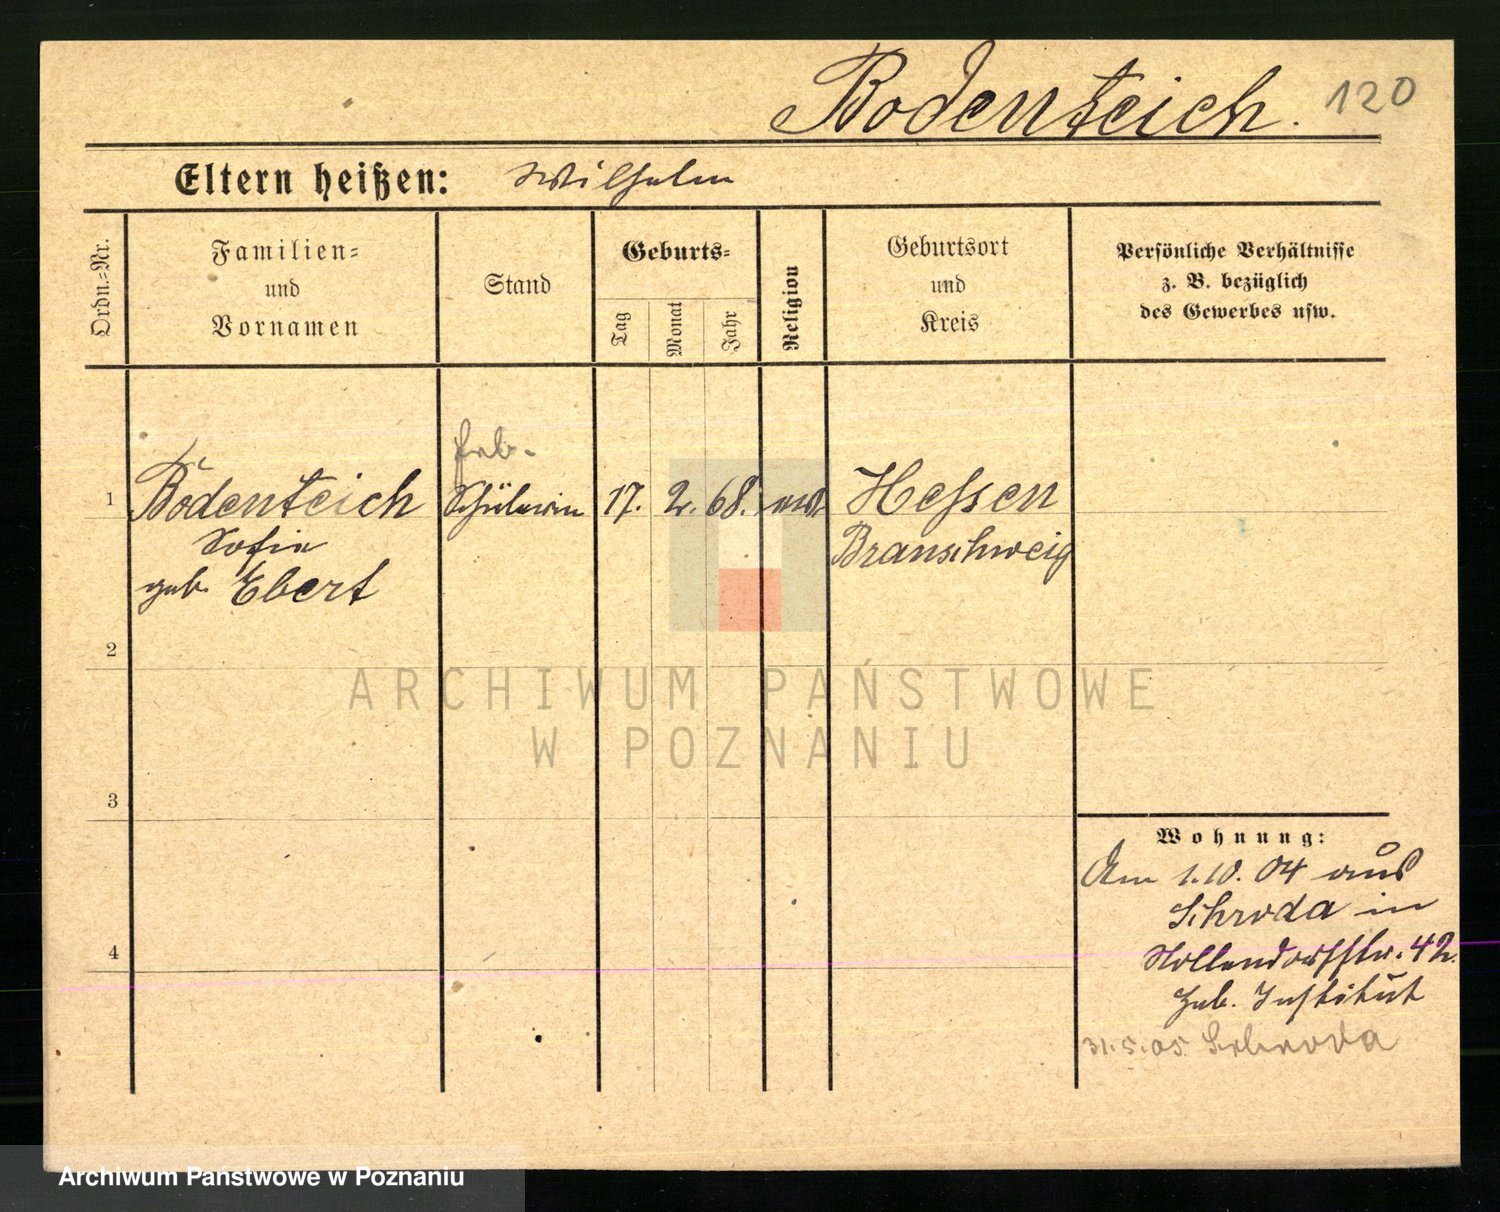 Bodenteich. 120
Eltern heißen: Wilhelm
Ordn.-Nr.
Familien-
und
Vornamen
Stand
Geburts-
Tag
Monat
Jahr
Religion
Geburtsort
und
Kreis
Persönliche Verhältnisse
z. B. bezüglich
des Gewerbes usw.
Heb.
1 Bodenteich Schülerin 17. 2. 68. Hessen
Sofie Branschweig
geb. Ebert
2
3
4
Wohnung:
Am 1.10. 04 aus
Schroda in
Nollendorfstr. 42.
Heb. Institut
31.5.05 Schroda
ARCHIWUM PAŃSTWOWE
W POZNANIU
Archiwum Państwowe w Poznaniu